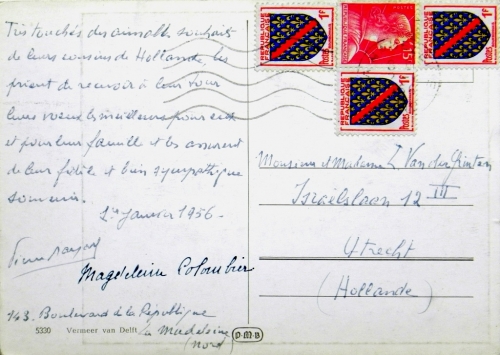 Très touchés des aimables souhaits
de leurs cousins de Hollande, les
prient de recevoir à leur tour
leurs vœux les meilleurs pour eux
et pour leur famille et les assurent
de leur fidèle et bien sympathique
souvenir.
1er Janvier 1956.
Magdeleine Colombier
143. Boulevard de la République
La Madeleine
(Nord)
5330 Vermeer van Delft
P.M.B
REPUBLIQUE FRANÇAISE
1F
POSTES
15F
REPUBLIQUE FRANÇAISE
1F
REPUBLIQUE FRANÇAISE
1F
Monsieur et Madame
Israëlslaan 12 III
Utrecht
(Hollande)